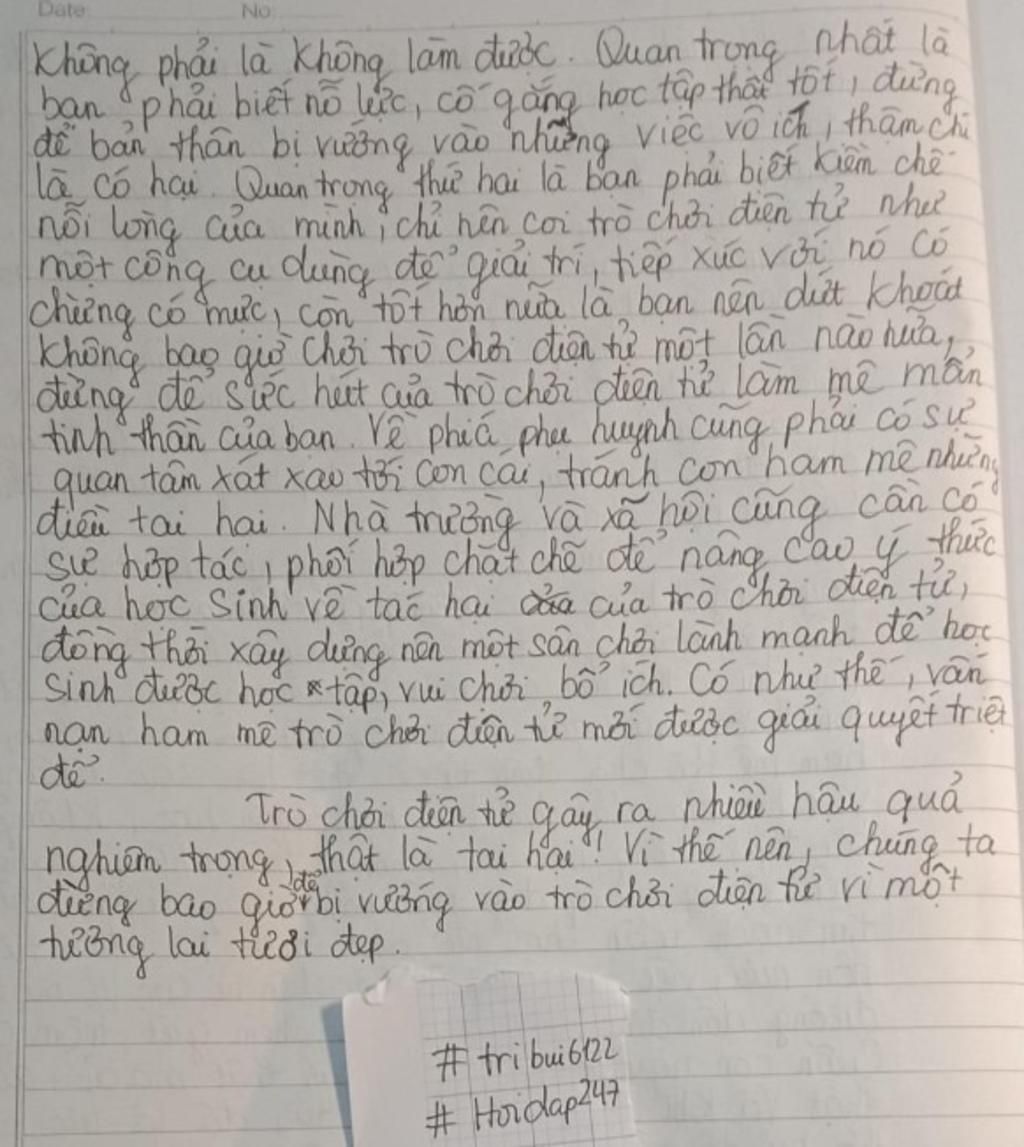 Date: No:
Không phải là không làm được. Quan trọng nhất là
bạn phải biết nỗ lực, cố gắng học tập thật tốt, đừng
để bản thân bị vướng vào những việc vô ích, thậm chí
là có hại. Quan trọng thứ hai là bạn phải biết kiềm chế
nỗi lòng của mình, chỉ nên coi trò chơi điện tử như
một công cụ dùng để giải trí, tiếp xúc với nó có
chừng có mực, còn tốt hơn nữa là bạn nên dứt khoát
không bao giờ chơi trò chơi điện tử một lần nào nữa,
đừng để sức hút của trò chơi điện tử làm mê mẩn
tinh thần của bạn. Về phía phụ huynh cũng phải có sự
quan tâm xát xao tới con cái, tránh con ham mê những
điều tai hại. Nhà trường và xã hội cũng cần có
sự hợp tác, phối hợp chặt chẽ để nâng cao ý thức
của học sinh về tác hại của trò chơi điện tử,
đồng thời xây dựng nên một sân chơi lành mạnh để học
sinh được học tập, vui chơi bổ ích. Có như thế, vấn
nạn ham mê trò chơi điện tử mới được giải quyết triệt
để.
Trò chơi điện tử gây ra nhiều hậu quả
nghiêm trọng, thật là tai hại! Vì thế nên, chúng ta
đừng bao giờ để bị vướng vào trò chơi điện tử vì một
tương lai tươi đẹp.
# tribui6122
# Hoidap247